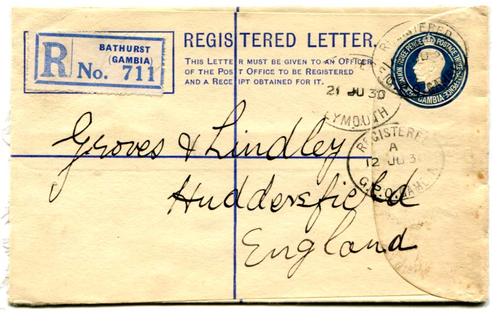 R
BATHURST
(GAMBIA)
No. 711
REGISTERED LETTER.
THIS LETTER MUST BE GIVEN TO AN OFFICER
OF THE POST OFFICE TO BE REGISTERED
AND A RECEIPT OBTAINED FOR IT.
REGISTERED
GAMBIA
21 JU 30
YMOUTH
REGISTERED
A
12 JU 3
G.P.O.
Groves & Lindley
Huddersfield
England